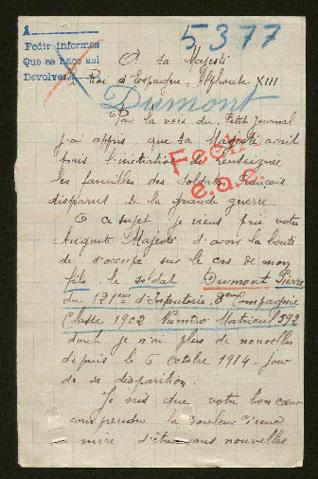 5377
A
Pedir informes
Que se hace aqui
Devolver
A Sa Majesté
Roi d'Espagne Alphonse XIII
Dumont
Par la voix du Petit Journal
j'ai appris que Sa Majesté avait
pris l'initiative de renseigner
les familles des Soldats Français
disparus de la grande guerre.
A ce sujet je viens prié votre
Auguste Majesté d'avoir la bonté
de s'occupé sur le cas de mon
fils le soldat Dumont Pierre
du 131eme d'Infanterie, 3eme Compagnie
Classe 1902 Numéro Matricul 392
dont je n'ai plus de nouvelles
depuis le 5 octobre 1914 jour
de sa disparition.
Je sais que votre bon cœur
comprendra la douleur d'une
mère d'être sans nouvelles